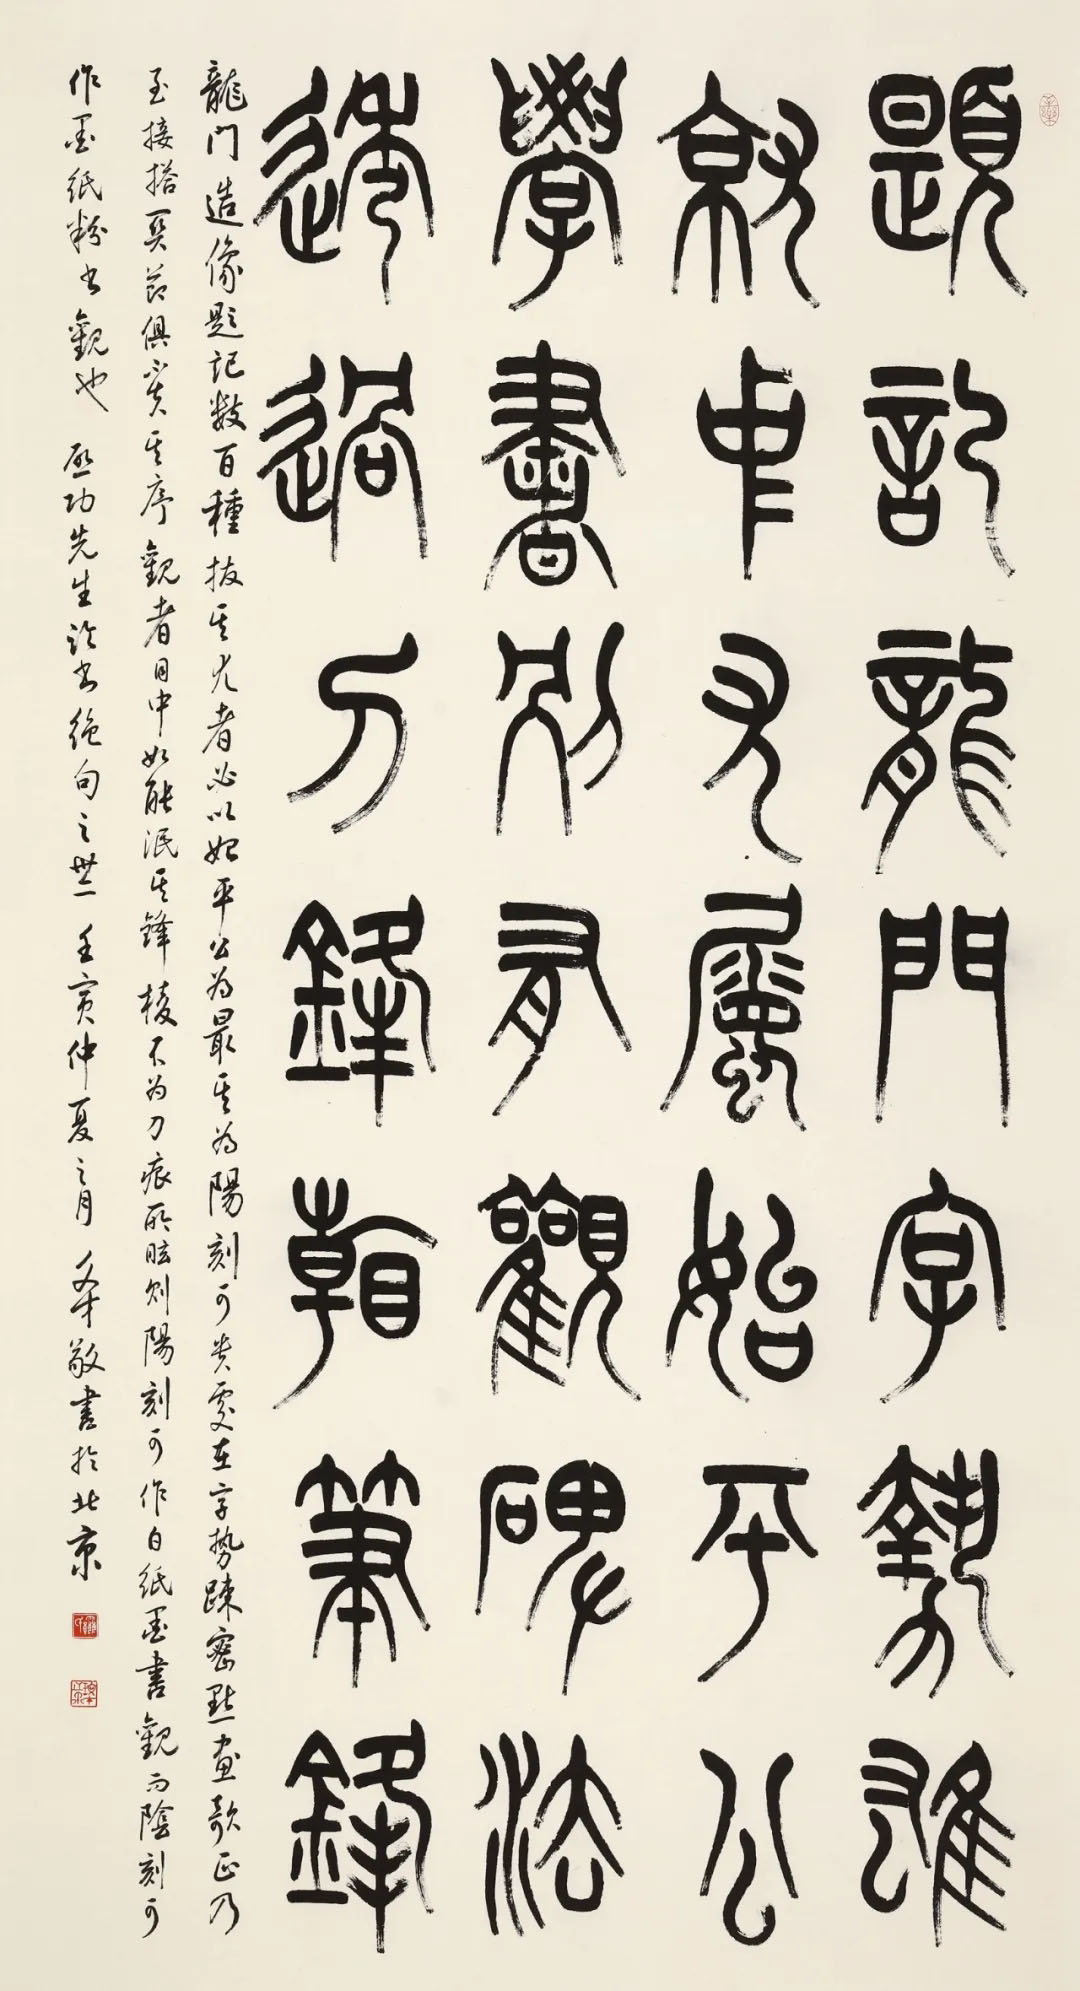 題記龍門字勢雄
就中尤屬始平公
學書別有觀碑法
透過刀鋒看筆鋒
龍門造像題記數百種拔其尤者必以始平公為最其為陽刻可貴處在字勢疏密點畫欹正乃
至接搭關節俱不失其序觀者目中如能泯其鋒棱不為刀痕所眩則陽刻可作白紙墨書觀而陰刻可
作墨紙粉書觀也 啟功先生論書絕句之卅二 壬寅仲夏之月 敬書於北京